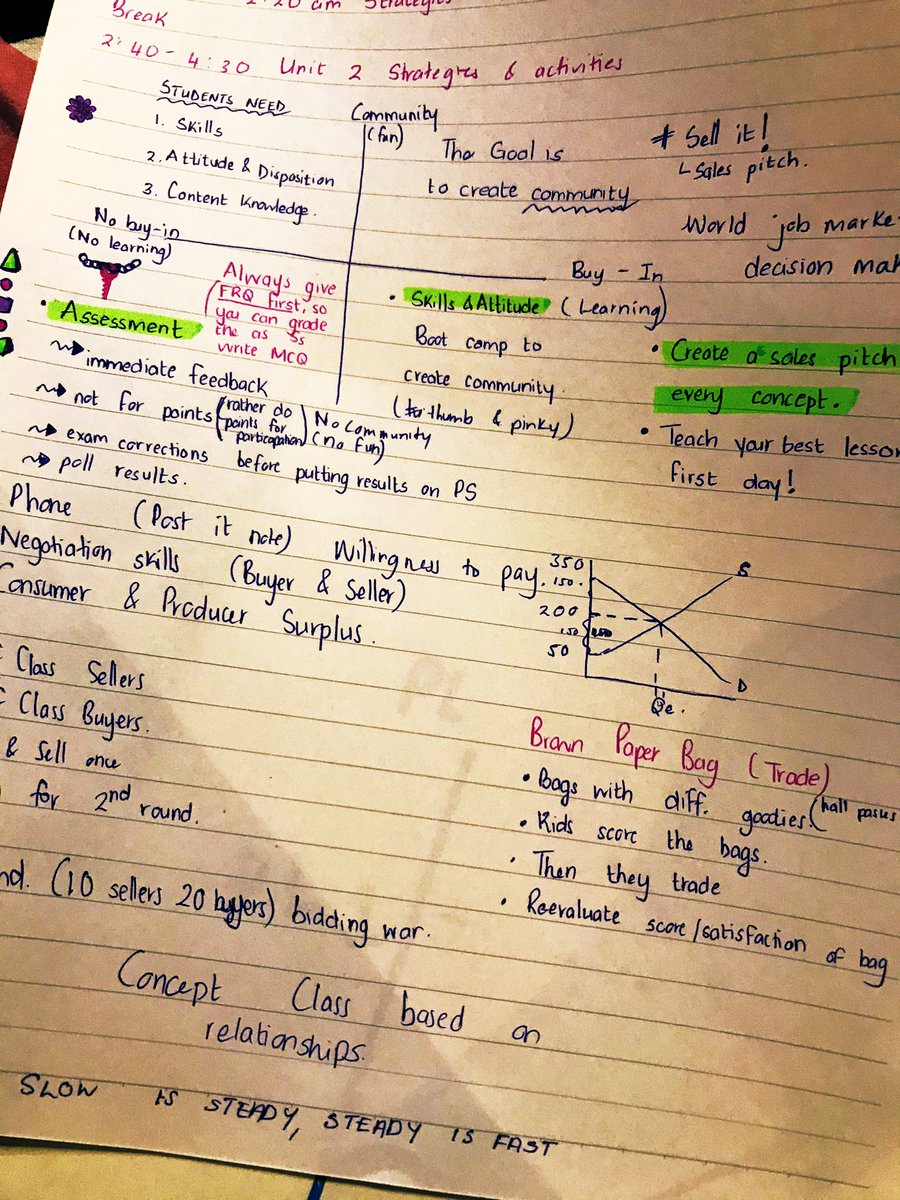 2:20 am Strategies
Break
2:40 - 4:30 Unit 2 Strategies & activities
STUDENTS NEED
1. Skills
2. Attitude & Disposition
3. Content Knowledge.
Community
(fun)
The Goal is
to create community
* Sell it!
↳ Sales pitch.
World job marke
decision mak
No buy-in
(No learning)
Buy - In
(Learning)
Always give
FRQ first, so
you can grade
the as Ss
write MCQ
• Assessment
immediate feedback
not for points (rather do
points for
participation)
exam corrections before putting results on PS
poll results.
No community
(no fun)
• Skills & Attitude
Boot camp to
create community.
(to thumb & pinky)
• Create a sales pitch
every concept.
• Teach your best lesso
first day!
Phone (Post it note) Willingness to pay.
Negotiation skills (Buyer & Seller)
Consumer & Producer Surplus.
350
150.
200
150
50
S
D
Qe.
Class Sellers
Class Buyers.
& Sell once
for 2nd round.
nd. (10 sellers 20 buyers) bidding war.
Brown Paper Bag (Trade)
• Bags with diff. goodies. (hall passes
• Kids score the bags.
• Then they trade
• Reevaluate score/satisfaction of bag
Concept Class based on
relationships.
SLOW IS STEADY, STEADY IS FAST